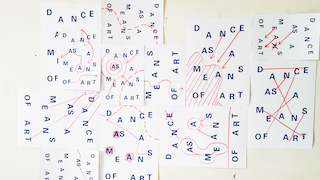 DANCE
AS A
MEANS
OF ART
DANCE
AS A
MEANS
OF ART
DANCE
AS A
MEANS
OF ART
DANCE
AS A
MEANS
OF ART
DANCE
AS A
MEANS
OF ART
DANCE
AS A
MEANS
OF ART
DANCE
AS A
MEANS
OF ART
DANCE
AS A
MEANS
OF ART
DANCE
AS A
MEANS
OF ART